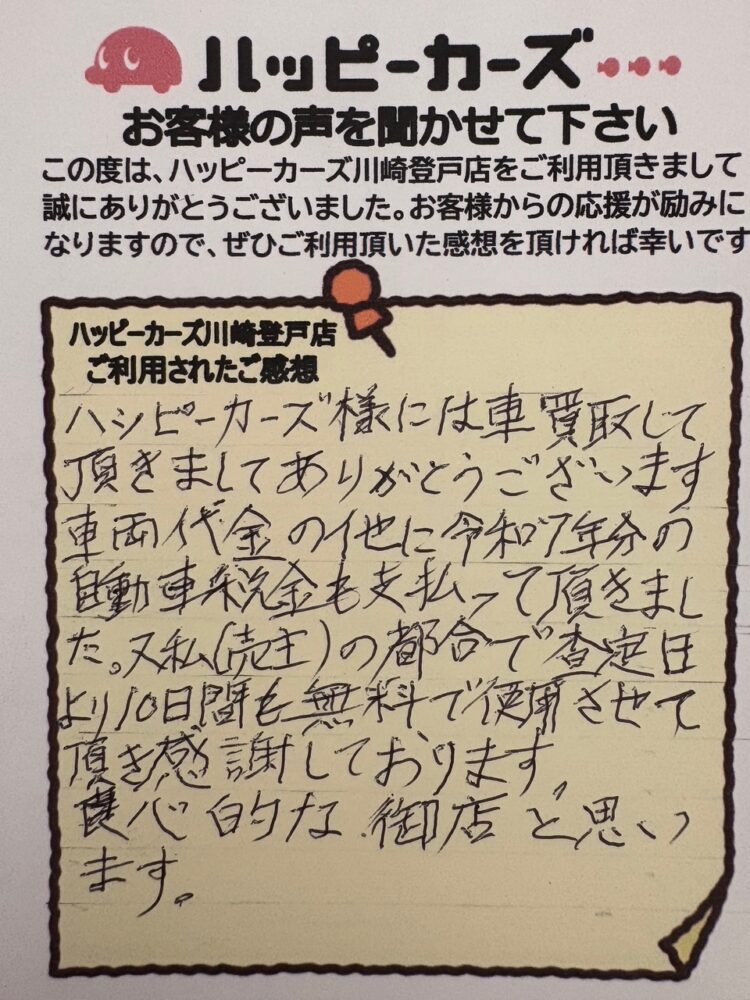 ハッピーカーズ
お客様の声を聞かせて下さい
この度は、ハッピーカーズ川崎登戸店をご利用頂きまして
誠にありがとうございました。お客様からの応援が励みに
なりますので、ぜひご利用頂いた感想を頂ければ幸いです
ハッピーカーズ川崎登戸店
ご利用されたご感想
ハッピーカーズ様には車買取して
頂きましてありがとうございます
車両代金の他に令和7年分の
自動車税金も支払って頂きまし
た。又私(売主)の都合で査定日
より10日間も無料で使用させて
頂き感謝しております。
良心的な御店と思い
ます。